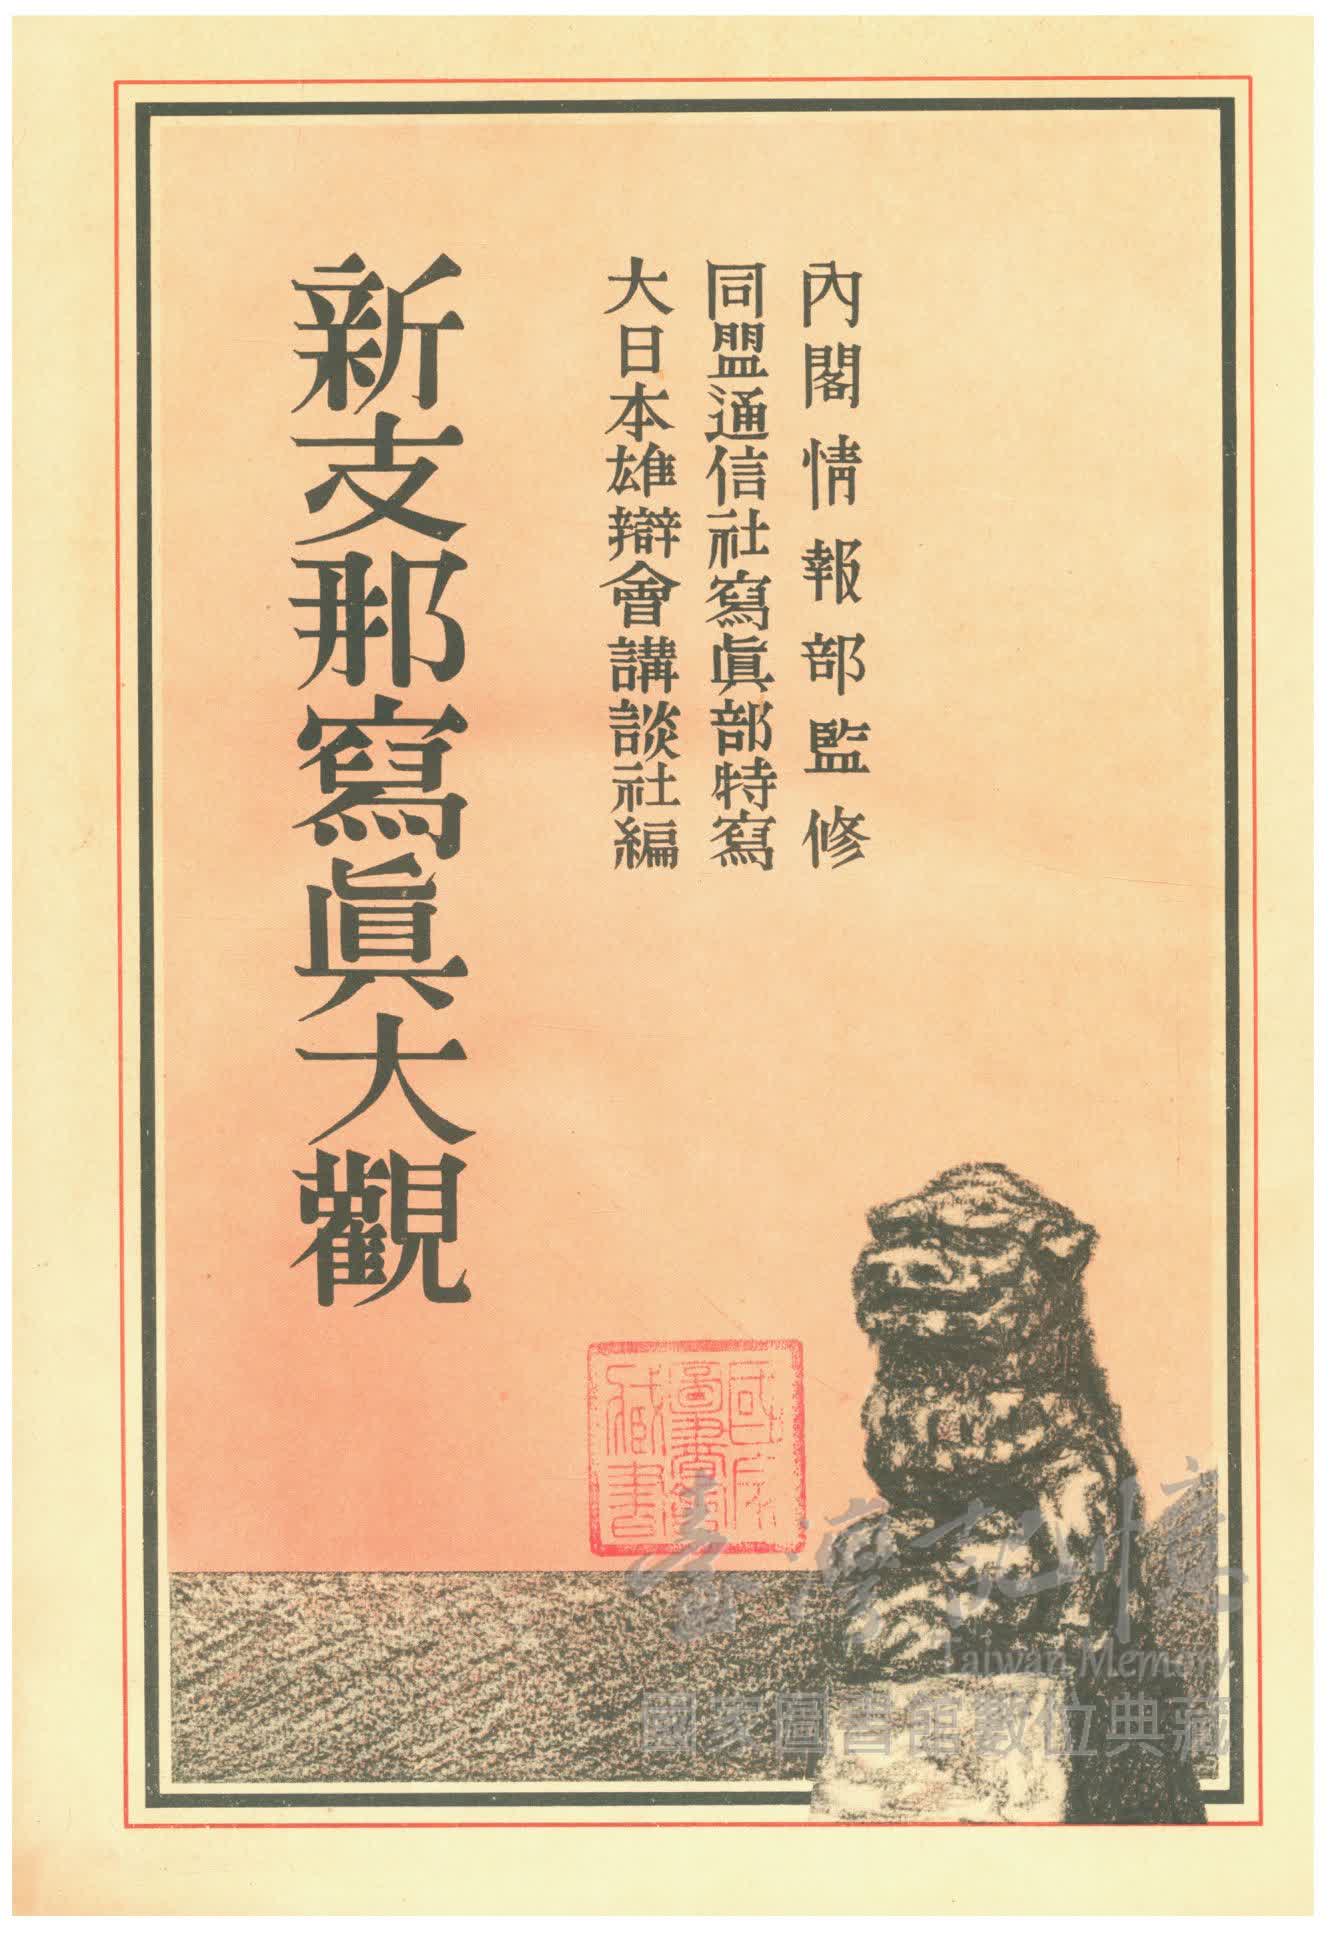 內閣情報部監修
同盟通信社寫眞部特寫
大日本雄辯會講談社編
新支那寫眞大觀
國家圖書館藏書
臺灣記憶
Taiwan Memory
國家圖書館數位典藏